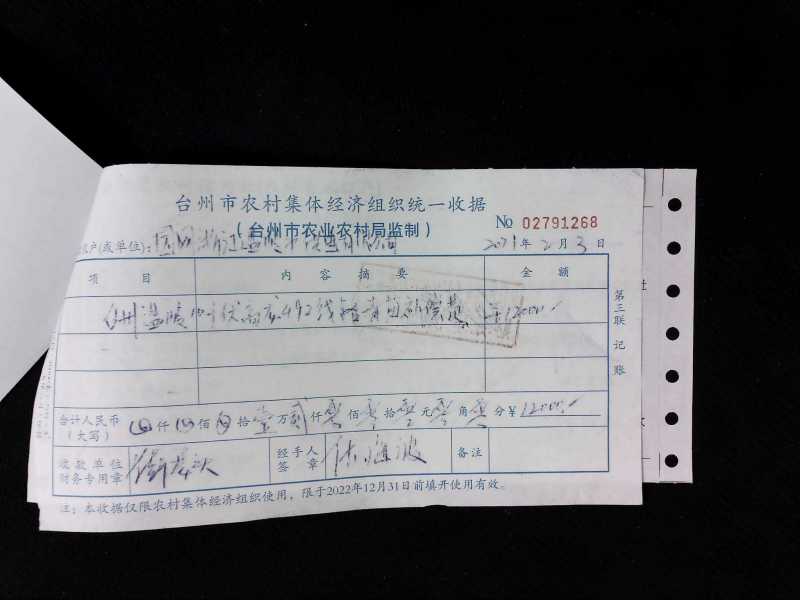 台州市农村集体经济组织统一收据
(台州市农业农村局监制)
№ 02791268
户(或单位): 国网浙江温岭市供电有限公司
2021年2月3日
项 目 内 容 摘 要 金 额
台州温岭 492线 12000
合计人民币
(大写) 仟 佰 拾 壹 万 贰 仟 零 佰 零 拾 零 元 零 角 零 分 ¥ 12000
收款单位
财务专用章
经手人
签 章
备注
注:本收据仅限农村集体经济组织使用,限于2022年12月31日前填开使用有效。
第三联 记账